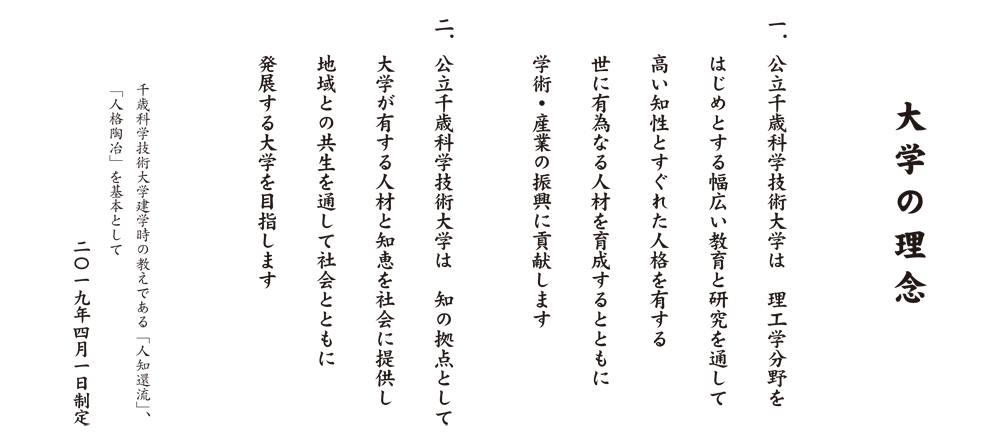 大学の理念
一．公立千歳科学技術大学は　理工学分野を
はじめとする幅広い教育と研究を通して
高い知性とすぐれた人格を有する
世に有為なる人材を育成するとともに
学術・産業の振興に貢献します
二．公立千歳科学技術大学は　知の拠点として
大学が有する人材と知恵を社会に提供し
地域との共生を通して社会とともに
発展する大学を目指します
千歳科学技術大学建学時の教えである「人知還流」、
「人格陶冶」を基本として
二〇一九年四月一日制定